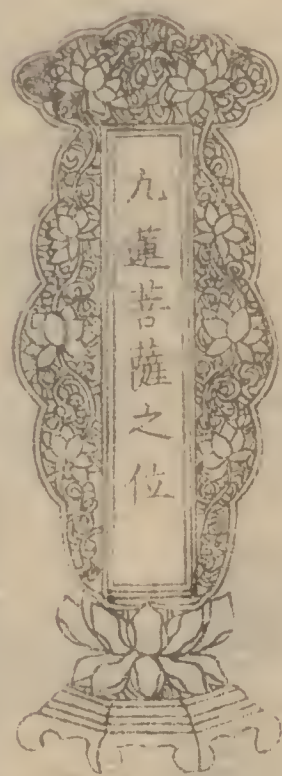 九蓮菩薩之位